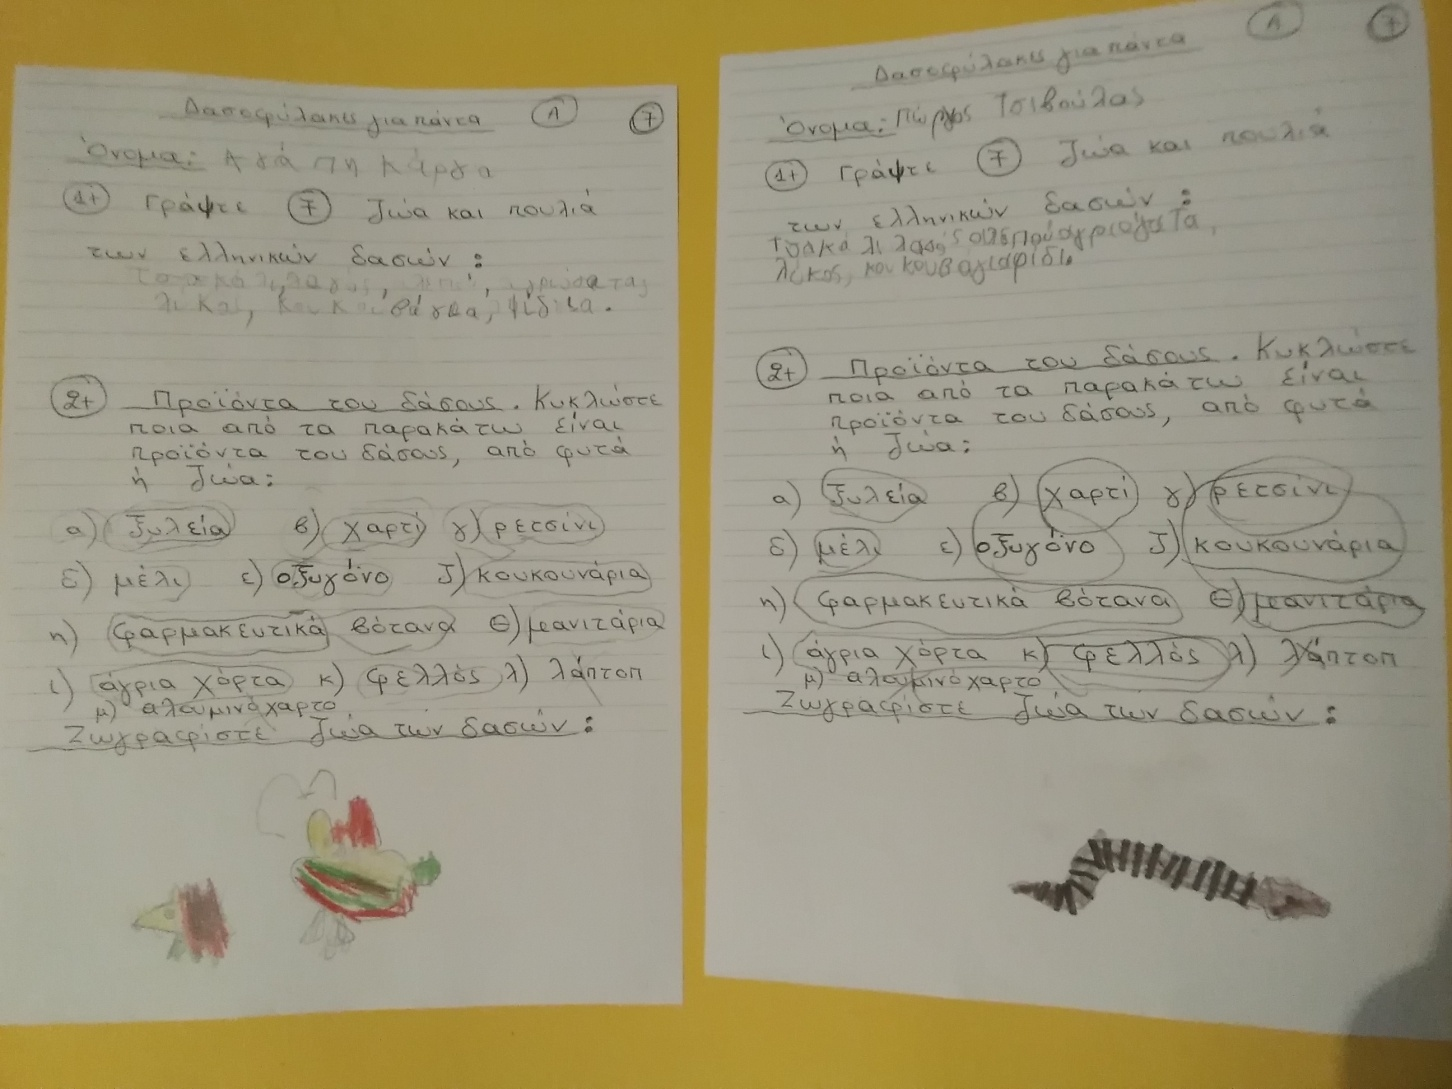 Δασοφύλακες για πάντα Α 7
Όνομα: Αγάπη Κάργα
1+ Γράψτε 7 ζώα και πουλιά
των ελληνικών δασών:
λύκος, κουκουβάγια, φίδια.
2+ Προϊόντα του δάσους. Κυκλώστε
ποια από τα παρακάτω είναι
προϊόντα του δάσους, από φυτά
ή ζώα:
α) ξυλεία β) χαρτί γ) ρετσίνι
δ) μέλι ε) οξυγόνο ζ) κουκουνάρια
η) φαρμακευτικά βότανα θ) μανιτάρια
ι) άγρια χόρτα κ) φελλός λ) λάπτοπ
μ) αλουμινόχαρτο
Ζωγραφίστε ζώα των δασών:
Δασοφύλακες για πάντα Α 7
Όνομα: Γιώργος Τσιβούλας
1+ Γράψτε 7 ζώα και πουλιά
των ελληνικών δασών:
λύκος, κουκουβαγιαφίδι.
2+ Προϊόντα του δάσους. Κυκλώστε
ποια από τα παρακάτω είναι
προϊόντα του δάσους, από φυτά
ή ζώα:
α) ξυλεία β) χαρτί γ) ρετσίνι
δ) μέλι ε) οξυγόνο ζ) κουκουνάρια
η) φαρμακευτικά βότανα θ) μανιτάρια
ι) άγρια χόρτα κ) φελλός λ) λάπτοπ
μ) αλουμινόχαρτο
Ζωγραφίστε ζώα των δασών: